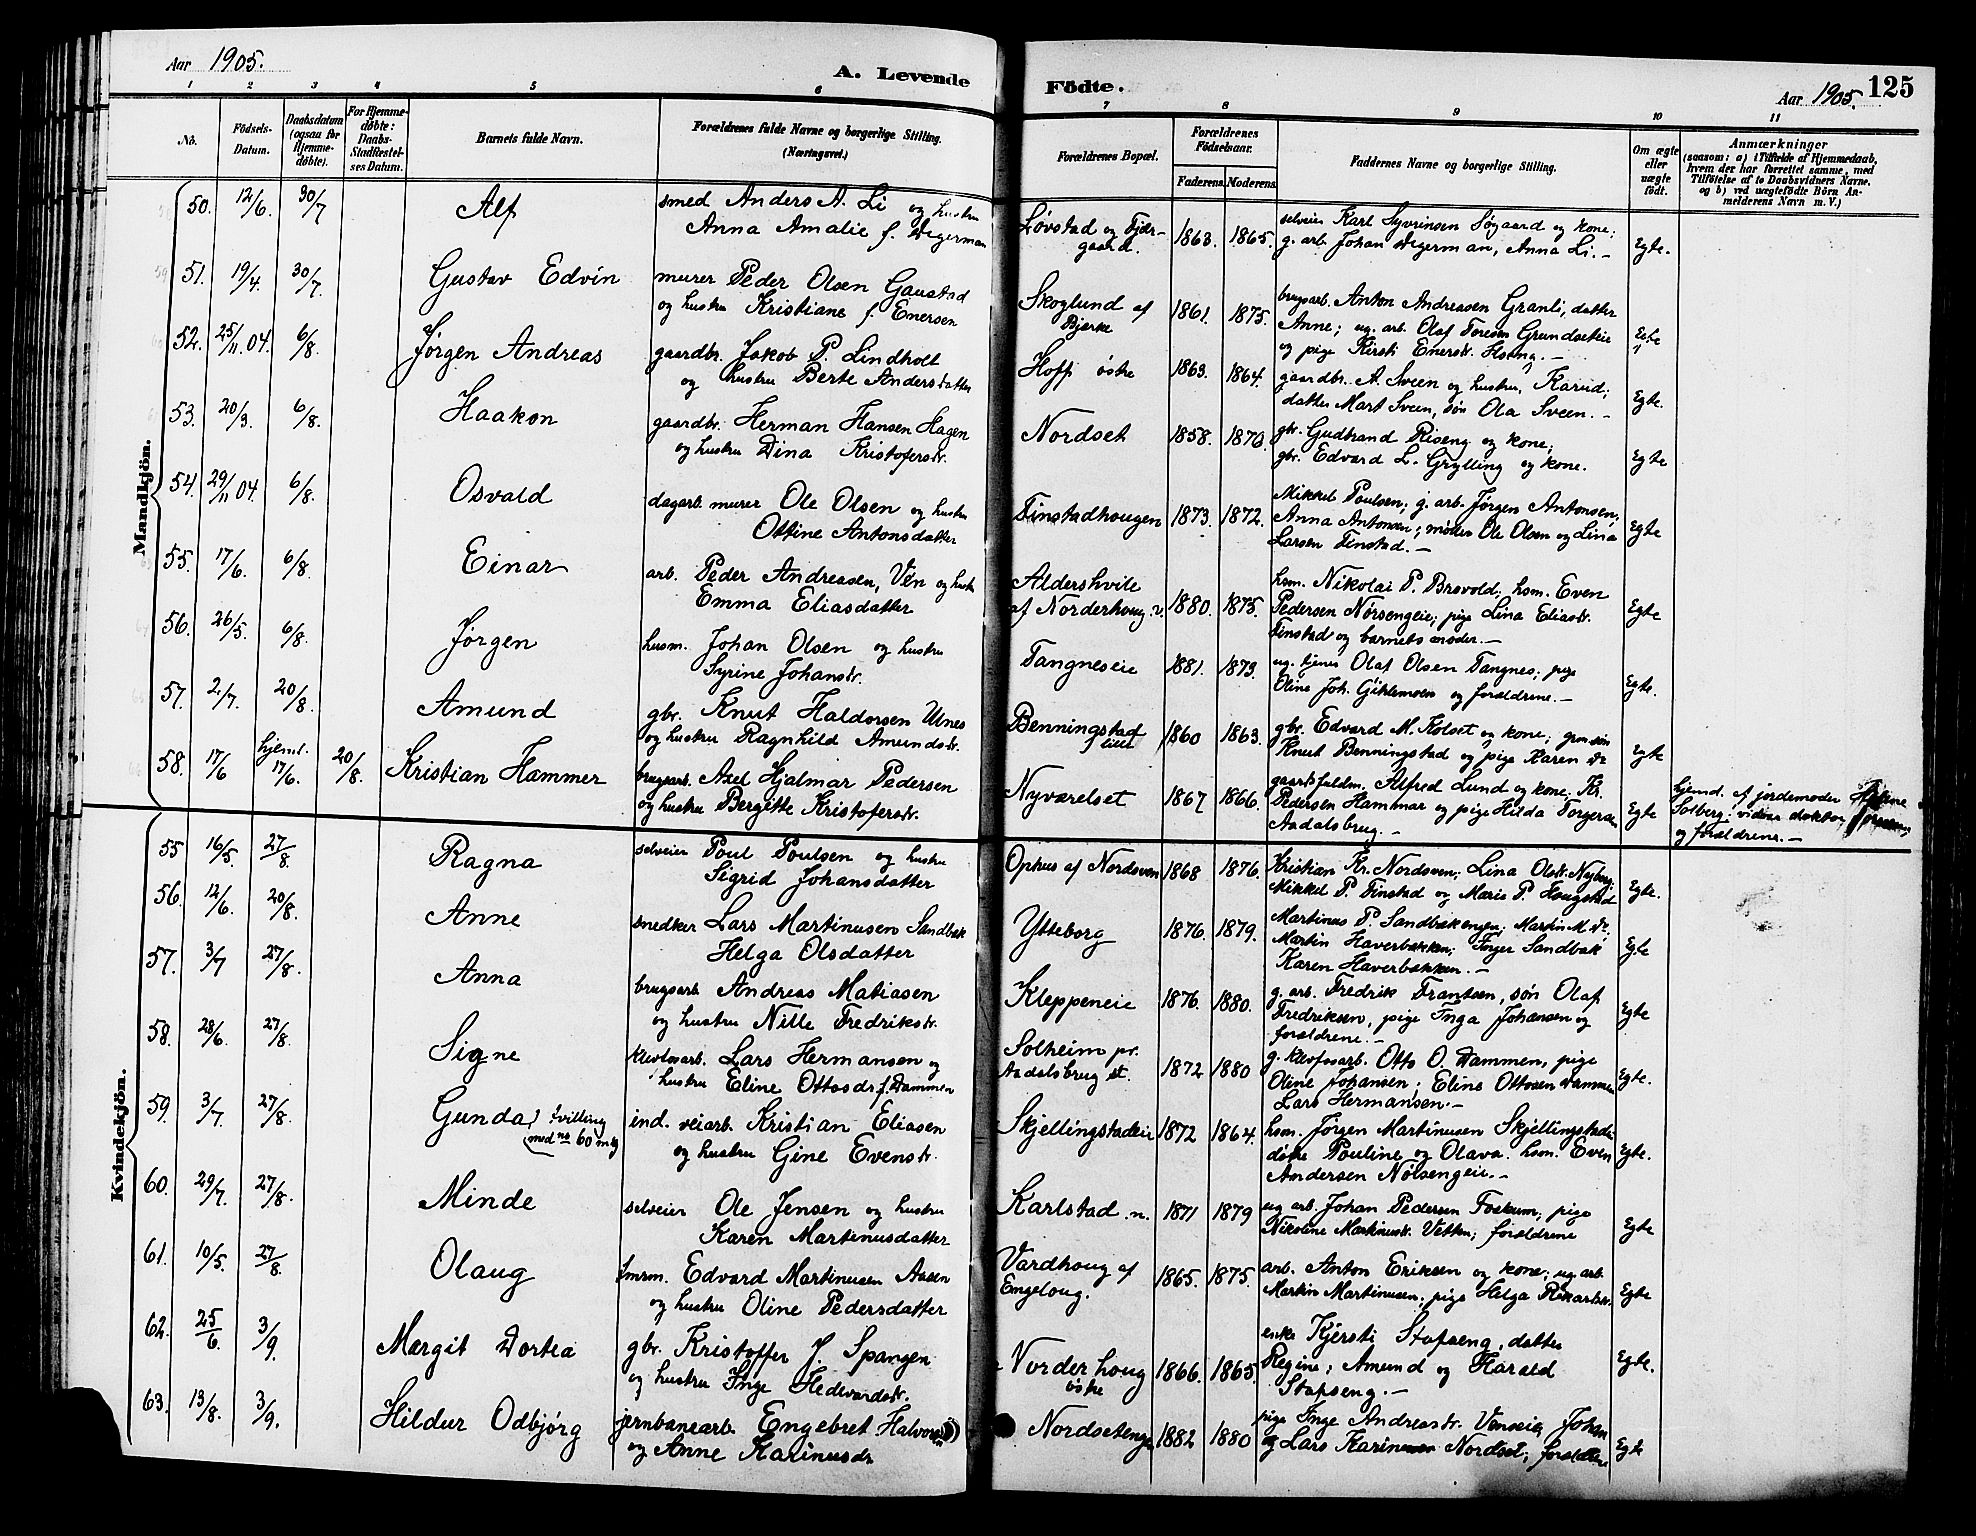 Aar 1905.
A. Levende
Fødte.
Aar 1905.
125
1 2 3 4 5 6 7 8 9 10 11
No.
Fødsels-
Datum.
Daabsdatum
(ogsaa for
Hjemme-
døbte).
For Hjemme-
døbte:
Daabs-
Stadfæstel-
ses Datum.
Barnets fulde Navn.
Forældrenes fulde Navne og borgerlige Stilling.
(Næringsvei.)
Forældrenes Bopæl.
Forældrenes
Fødselsaar.
Faderens. Moderens.
Faddernes Navne og borgerlige Stilling.
Om ægte
eller
uægte
født.
Anmærkninger
(saasom: a) i Tilfælde af Hjemmedaab,
hvem der har forrettet samme, med
Tilføielse af to Daabsvidners Navne,
og b) ved uægtefødte Børn An-
melderens Navn m. V.)
Mandkjön.
50. 12/6. 30/7 Alf smed Anders A. Li og hustru
Anna Amalie f. Degerman
Løvstad og Fjær-
gaard. 1863. 1865. selveier Karl Syvrinsen Søgaard og kone;
g. arb. Johan Degerman, Anna Li. - Egte.
51. 19/4. 30/7. Gustav Edvin murer Peder Olsen Gaustad
og hustru Kristiane f. Enersen
Skoglund af
Bjerke 1861. 1875. brugsarb. Anton Andreasen Granli, datter
Anne; ug. arb. Olaf Toresen Grundseteie
og pige Kirsti Enerstr. Hoeng. - Egte
52. 25/11.04. 6/8. Jørgen Andreas gaardbr. Jakob P. Lindholt
og hustru Berte Andersdatter
Hoff østre 1863. 1864. gaardbr. A. Sveen og hustru, Karud;
datter Mart Sveen, søn Ola Sveen. - Egte.
53. 20/3. 6/8. Haakon gaardbr. Herman Hansen Hagen
og hustru Dina Kristofersdr.
Nordset 1858. 1870. gbr. Gudbrand Riseng og kone;
gbr. Edvard L. Grylling og kone. Egte
54. 29/11 04. 6/8 Osvald dagarb. murer Ole Olsen og hustru
Ottine Antonsdatter
Finstadhougen 1873. 1872. Mikkel Poulsen; g. arb. Jørgen Antonsen,
Anna Antonsen; moder Ole Olsen og Lina
Larsen Finstad. - Egte
55. 17/6. 6/8. Einar arb. Peder Andreasen, Vén og hustr
Emma Eliasdatter
Aldershvile
af Norderhoug v. 1880. 1875. hsm. Nikolai P. Brovold; hsm. Even
Pedersen Nørsengeie; pige Lina Eliasdr.
Finstad og barnets moder. - Egte
56. 26/5. 6/8. Jørgen husm. Johan Olsen og hustru
Syrine Johansdr.
Tangneseie 1881. 1873. ug. tjener Olaf Olsen Tangnes; pige
Oline Joh. Gihlemoen og forældrene. - Egte.
57. 2/7. 20/8. Amund gbr. Knut Haldorsen Ulnes
og hustru Ragnhild Amundsdr.
Benningstad
lille 1860 1863. gbr. Edvard M. Kolset og kone; grosson
Knut Benningstad og pige Karen do Egte
58. 17/6 hjemd. 17/6. 20/8. Kristian Hammer brugsarb. Axel Hjalmar Pedersen
og hustru Bergitte Kristofersdr.
Nyværelset 1867 1866. gaardsfuldm. Alfred Lund og kone; Kr.
Pedersen Hammar og pige Hilda Torgersen
Aadalsbrug. - Egte
hjemd. af jordemoder
Solberg; vidner doktor
og forældrene. -
Kvindekjön.
55 16/5. 27/8. Ragna selveier Poul Poulsen og hustru
Sigrid Johansdatter
Ophus af Nordsven 1868 1876. Kristian Kr. Nordsven; Lina Olsdr. Nyborg;
Mikkel P. Finstad og Marie P. Hougstad Egte.
56. 12/6. 20/8. Anne snedker Lars Martinusen Sandbak
Helga Olsdatter
Ytteborg 1876. 1879. Martinus P. Sandbakengen; Martin M. do.
Martin Haverbakken; Inger Sandbak
Karen Haverbakken. - Egte
57. 3/7 27/8. Anna brugsarb Andreas Matiasen
og hustru Nille Fredriksdr.
Kleppeneie 1876. 1880. g. arb. Fredrik Frantsen, søn Olaf
Fredriksen, pige Inga Johansen og
forældrene. - Egte
58. 28/6. 27/8. Signe Klevfosarb. Lars Hermansen og
hustru Eline Ottosdr f. Dammen
Solheim pr.
Aadalsbrug st. 1872 1880 g. Klevfosarb. Otto O. Dammen, pige
Oline Johansen; Eline Ottosen Dammen
Lars Hermansen. - Egte.
59. 3/7. 27/8. Gunda (tvilling
med no 60 m.kj ind. veiarb. Kristian Eliasen
og hustru Gine Evensdr.
Skjellingstadeie 1872 1864. hsm. Jørgen Martinusen Skjellingstadeie
døtre Pouline og Olava. hsm. Even
Andersen Nølsengeie. - Egte.
60. 29/7. 27/8. Minde selveier Ole Jensen og hustru
Karen Martinusdatter
Karlstad n. 1871 1879 ug arb. Johan Pedersen Foskum; pige
Nikoline Martinusdr. Vetten; forældrene Egte
61. 10/5. 27/8. Olaug fmrm. Edvard Martinusen Aasen
og hustru Oline Pedersdatter
Vardhoug af
Engeloug. 1865. 1875. arb. Anton Eriksen og kone; ug. arb.
Martin Martinusen; pige Helga Rikartsdr. Egte
62. 25/6. 3/9. Margit Dortea gbr. Kristoffer J. Spangen
og hustru Inge Hedevardsdr.
Norderhoug
østre 1866. 1865. enke Kjersti Stafseng, datter
Regine; Amund og Harald
Stafseng. - Egte.
63. 13/8. 3/9. Hildur Odbjørg jernbanearb. Engebret Halvorsen
og Anne Karinusdr
Nordsetenge 1882 1880 pige Inge Andreasdr. Venseie, Johan
og Lars Karinusen Nordset; forældrene Egte